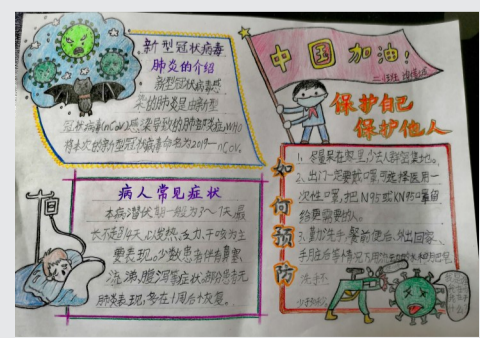 新型冠状病毒
肺炎的介绍
新型冠状病毒感
染的肺炎是由新型
冠状病毒(nCoV)感染导致的肺部炎症,WHO
将本次的新型冠状病毒命名为2019-nCoV。
中国加油!
保护自己
保护他人
病人常见症状
本病潜伏期一般为3~7天,最
长不超14天,以发热、乏力、干咳为主
要表现。少数患者伴有鼻塞、
流涕、腹泻等症状,部分患者无
肺炎表现,多在1周后恢复。
如何预防
1、尽量呆在家里少去人群密集地。
2、出门一定要戴口罩可选择医用一
次性口罩,把N95或KN95口罩留
给更需要的人。
3、勤洗手,餐前便后、外出回家、
手脏后等情况下用
洗手